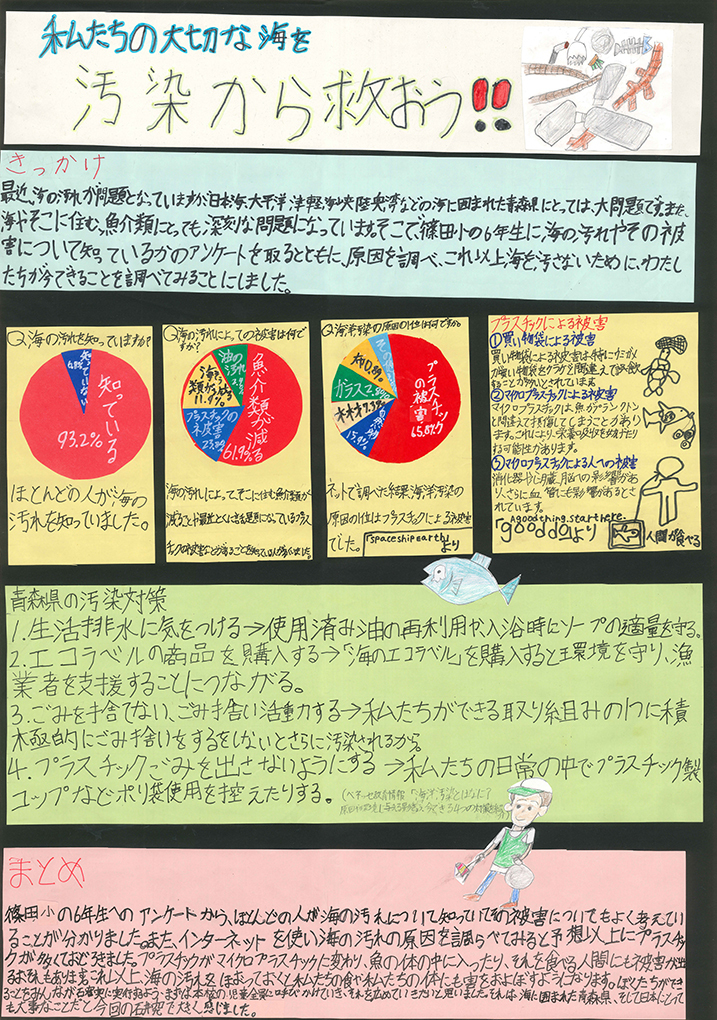 私たちの大切な海を
汚染から救おう!!
きっかけ
最近、海の汚れが問題となっていますが、日本海、太平洋、津軽海峡、陸奥湾などの海に囲まれた青森県にとっては、大問題です。また、
海やそこに住む、魚介類にとっても、深刻な問題になっています。そこで篠田小の6年生に海の汚れやその被
害について知っているかのアンケートを取るとともに、原因を調べ、これ以上海を汚さないために、わたし
たちが今できることを調べてみることにしました。
Q海の汚れを知っていますか?
知っていない
6.8%
知っている
93.2%
ほとんどの人が海の
汚れを知っていました。
Q.海の汚れによっての被害は何で
すか?
魚介類が減る
61.9%
プラスチックの被害
油の汚れ
11.9%
海の汚れによって、そこに住む魚介類が
減ることや最近とくに話題になっているプラス
チックの被害などがあることを知っている人が多くいました。
Q海洋汚染の原因の1位は何ですか。
プラスチックの被害
65.8%
ガラス
ネットで調べた結果海洋汚染の
原因の1位はプラスチックによる被害
でした。「spaceshipearth」
より
プラスチックによる被害
①買い物袋による被害
買い物袋による被害は特にウミガメ
が買い物袋をクラゲと間違えて飲み込
むことが多いとされています
②マイクロプラスチックによる被害
マイクロプラスチックは魚がプランクトン
と間違えて誤飲してしまうことがあり
ます。これにより、栄養の吸収を妨げたり
する可能性があります。
③マイクロプラスチックによる人への被害
消化器や心臓、脳への影響があ
り、さらに血管にも影響があるとさ
れています。
Agoodthing.starthere.
「gooddo」より
人間が食べる
青森県の汚染対策
1.生活排水に気をつける→使用済み油の再利用や入浴時にソープの適量を守る。
2.エコラベルの商品を購入する→「海のエコラベル」を購入すると環境を守り、漁
業者を支援することにつながる。
3.ごみを捨てない、ごみ拾い活動する→私たちができる取り組みの1つに積
極的にごみ拾いをするをしないとさらに汚染されるから。
4.プラスチックごみを出さないようにする→私たちの日常の中でプラスチック製
コップなどポリ袋使用を控えたりする。
(ベネッセ教育情報「海洋汚染とはなに?
まとめ
篠田小の6年生へのアンケートから、ほとんどの人が海の汚れについて知っていてその被害についてもよく考えてい
ることが分かりました。また、インターネットを使い海の汚れの原因を調らべてみると予想以上にプラスチッ
クが多くておどろきました。プラスチックがマイクロプラスチックに変わり、魚の体の中に入ったり、それを食べる人間にも被害が出
るおそれもあります。これ以上、海の汚れをほおっておくと私たちの食や私たちの体にも害をおよぼすようになります。ぼくたちができ
ることをみんなが着実に実行するよう、まずは本校の児童全員に呼びかけていき、それを広めていきたいと思いました。それは、海に囲まれた青森県、そして日本にとって
も大事なことだと今回の研究で大きく感じました。